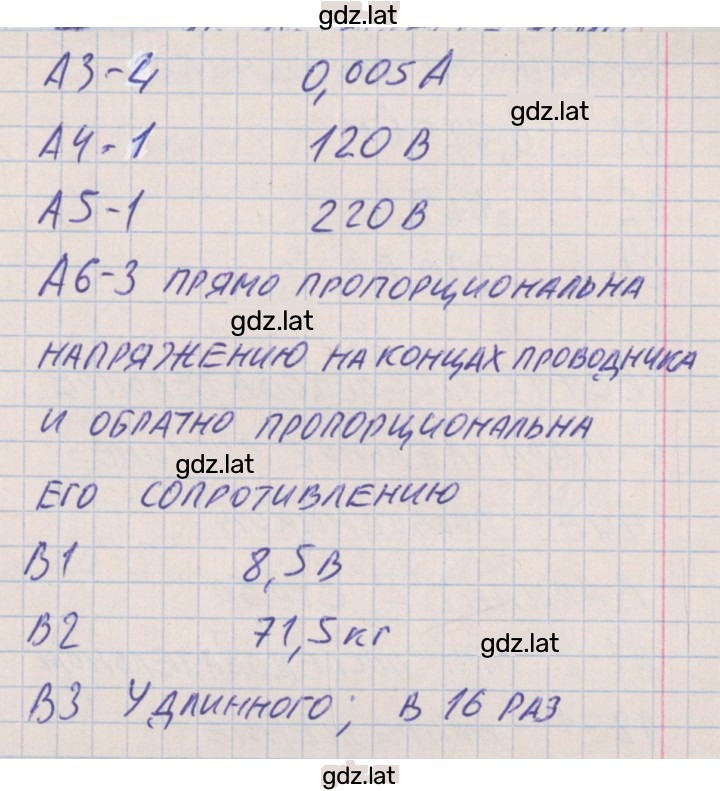 gdz.lat
А3-4 0,005А
gdz.lat
А4-1 120 В
А5-1 220 В
А6-3 ПРЯМО ПРОПОРЦИОНАЛЬНА
gdz.lat
НАПРЯЖЕНИЮ НА КОНЦАХ ПРОВОДНИКА
И ОБРАТНО ПРОПОРЦИОНАЛЬНА
gdz.lat
ЕГО СОПРОТИВЛЕНИЮ
В1 8,5 В
В2 71,5 кг
gdz.lat
В3 У ДЛИННОГО; В 16 РАЗ
gdz.lat